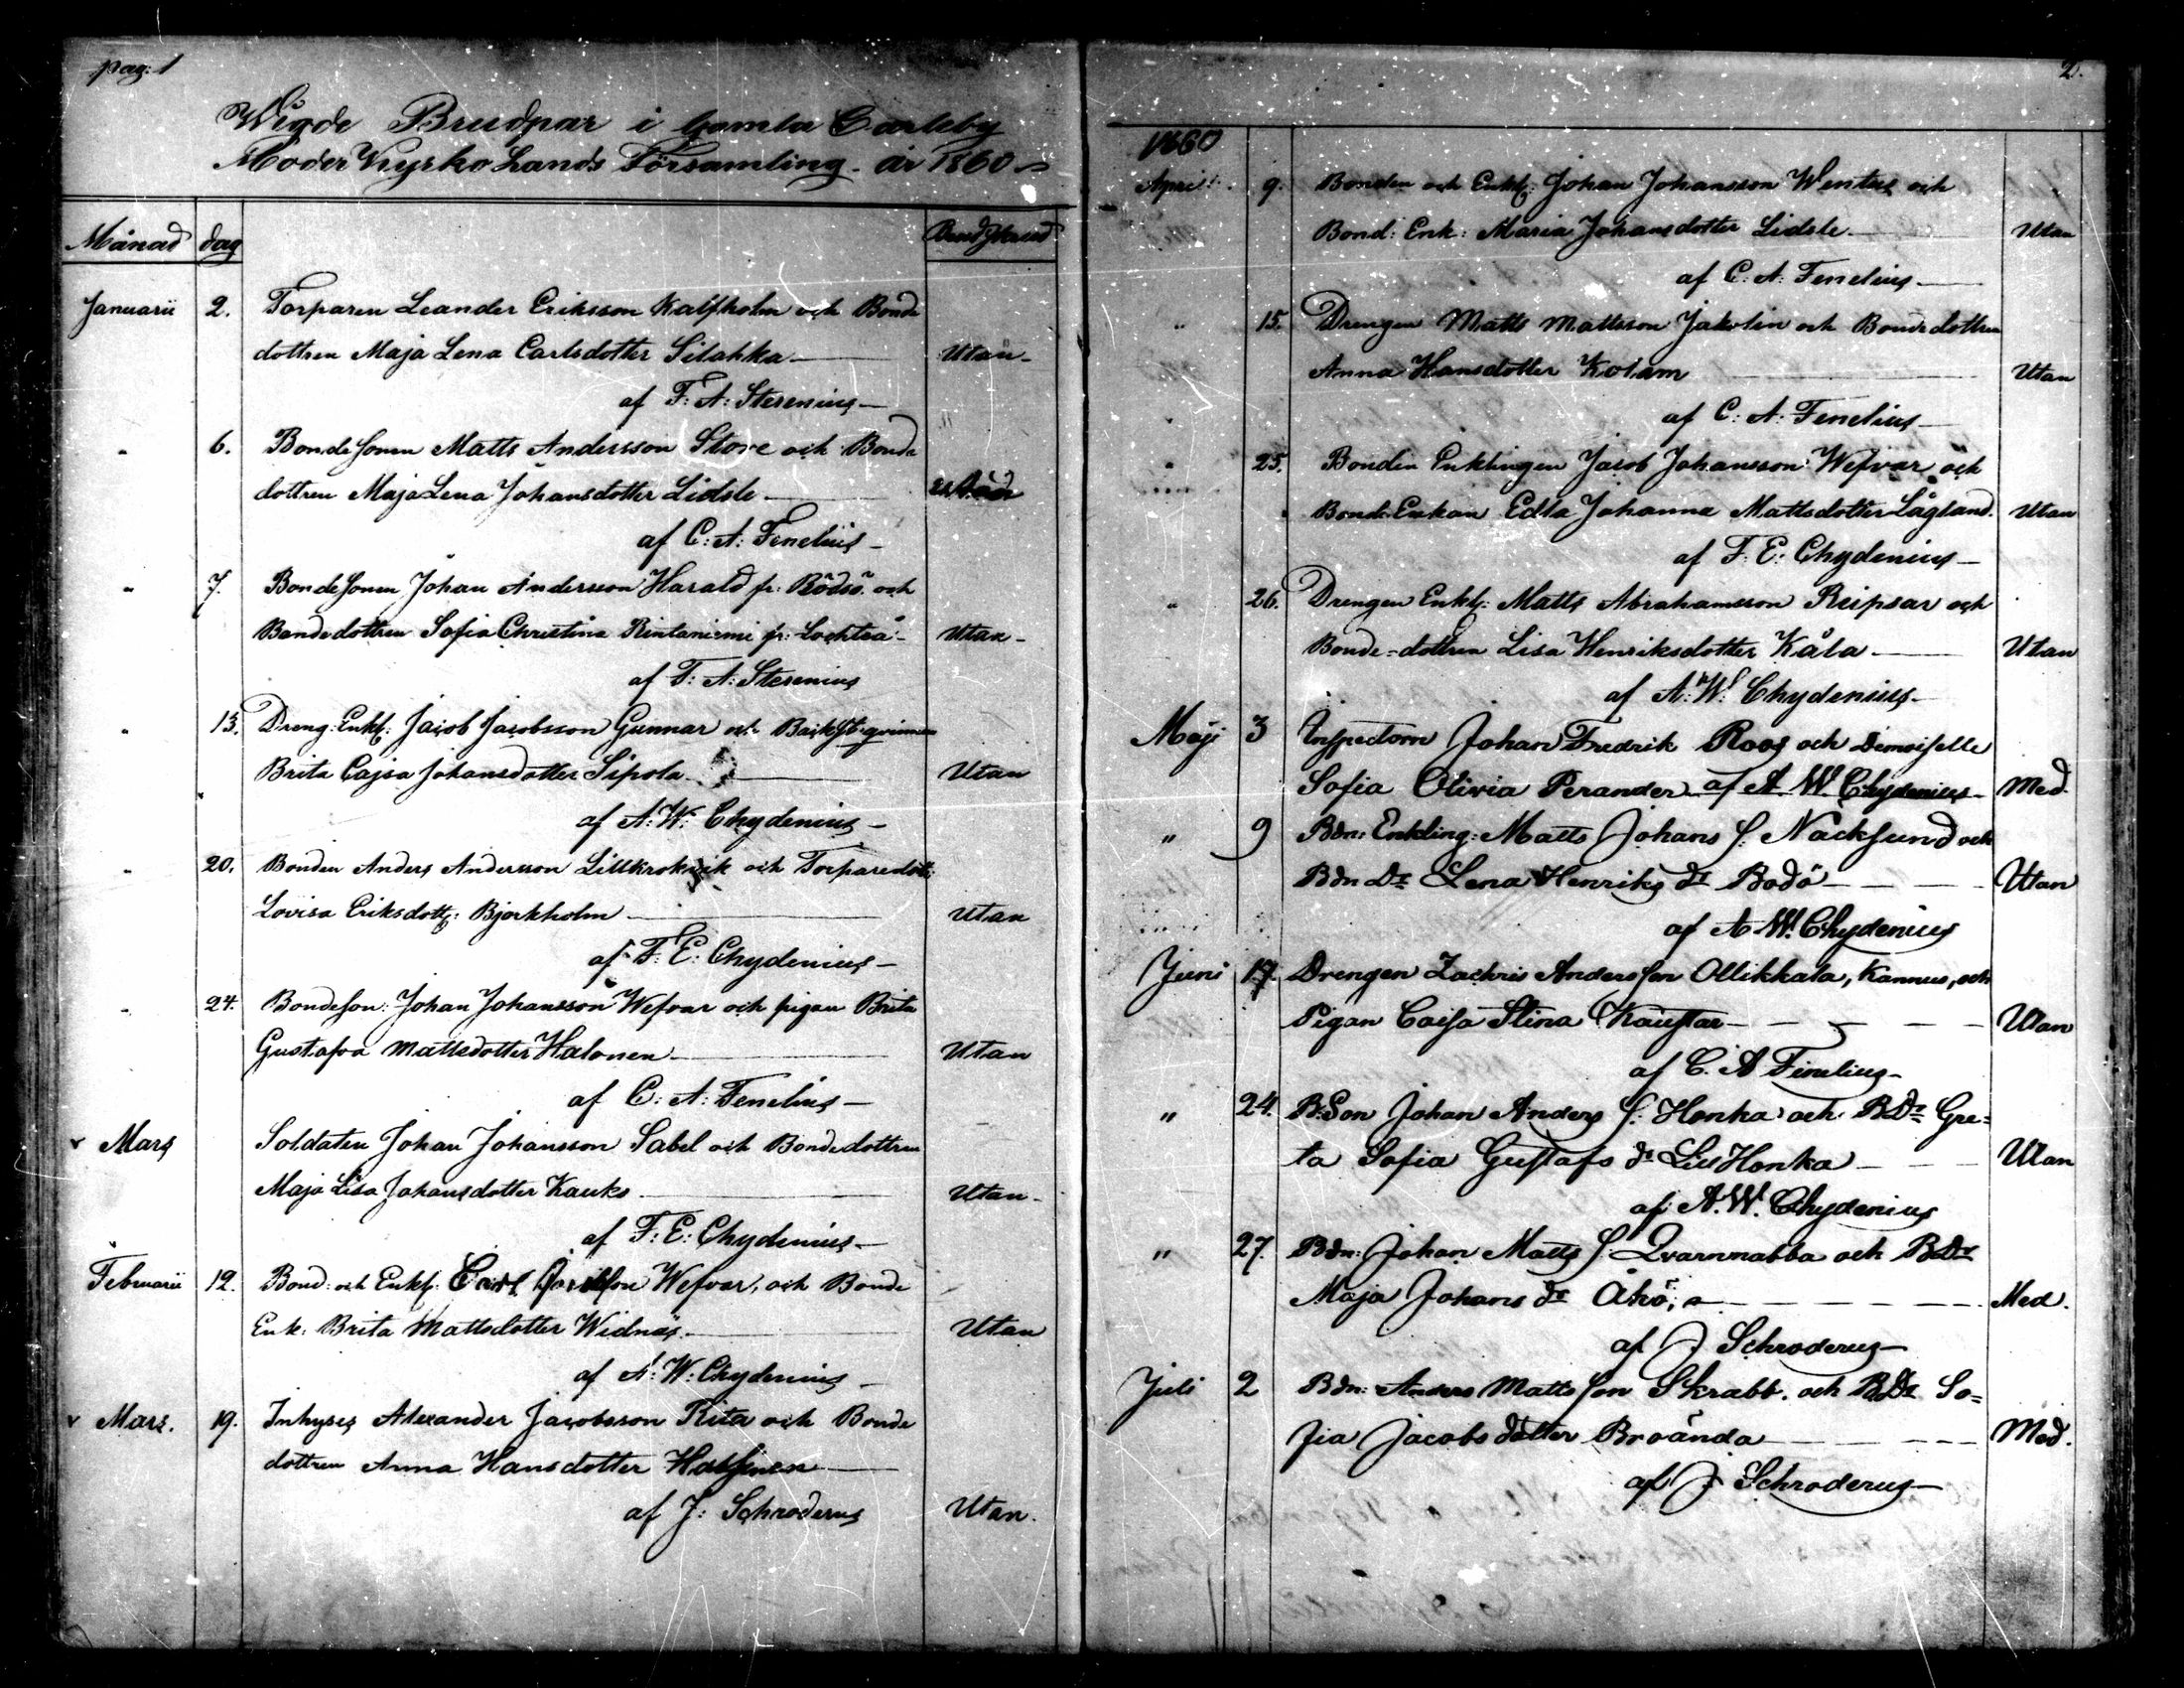 pag: 1
Wigde Brudpar i Gamla Carleby
Moder Kyrko Lands Församling år 1860
Månad dag
Januarii 2. Torparen Leander Eriksson Kalfholm och Bonde
dottren Maja Lena Carlsdotter Silahka Utan
af F: A: Stesenius
" 6. Bondesonen Matts Andersson Store och Bonde
dottren Maja Lena Johansdotter Lidsle
af C: A: Fenelius
" 7. Bondesonen Johan Andersson Harald fr: Rödsö och
Bondedottren Sofia Christina Rintaniemi fr: Lochteå Utan
af F: A: Stesenius
" 13. Dreng: Enkl: Jacob Jacobsson Gunnar och
Brita Cajsa Johansdotter Sipola Utan
af A: W: Chydenius
" 20. Bonden Anders Andersson Lillkrokvik och Torparedott:
Lovisa Eriksdott: Bjorkholm Utan
af F: E: Chydenius
" 24. Bondeson: Johan Johansson Wefvar och pigan Brita
Gustafva Mattsdotter Halonen Utan
af C: A: Fenelius
v Mars Soldaten Johan Johansson Sabel och Bondedottren
Maja Lisa Johansdotter Kauko Utan
af F: E: Chydenius
Februarii 12. Bond: och Enkl: Carl Wefvar, och Bonde
Enk: Brita Mattsdotter Widnäs Utan
af A: W: Chydenius
v Mars. 19. Inhyses Alexander Jacobsson Rita och Bonde
dottren Anna Hansdotter
af J: Schroderus Utan.
2.
1860
April 9. Bonden och Enkl: Johan Johansson Wentus och
Bond: Enk: Maria Johansdotter Lidsle Utan
af C: A: Fenelius
" 15. Drengen Matts Mattsson Jakolin och Bondedottren
Anna Hansdotter Kotam Utan
af C: A: Fenelius
" 25. Bonden Enklingen Jacob Johansson Wefvar och
Bonde Enkan Edla Johanna Mattsdotter Lågland. Utan
af F: E: Chydenius
" 26. Drengen Enkl: Matts Abrahamsson Reipsar och
Bonde-dottren Lisa Henriksdotter Kåla Utan
af A: W: Chydenius
Maji 3 Inspectorn Johan Fredrik Roos och Demoiselle
Sofia Olivia Perander af A W. Chydenius Med.
" 9 Bdn: Enkling: Matts Johans S: Nacksund och
Bdn Dr Lena Henriks dr Bodö Utan
af A W. Chydenius
Juni 17. Drengen Zachris Andersson Ollikkala, Kannus, och
Pigan Caisa Stina Kaustar Utan
af C. A Finelius
" 24. B:Son Johan Anders S: Honka och B.Dr Gre=
ta Sofia Gustafs dr Lill Honka Utan
af A. W. Chydenius
" 27. Bdn: Johan Matts S: Qvarnnabba och B.Dr
Maja Johans dr Åkö, Med.
af J Schroderus
Juli 2 Bdn: Anders Mattsson Skrabb. och B.Dr So=
fia Jacobsdotter Broända Med.
af J Schroderus